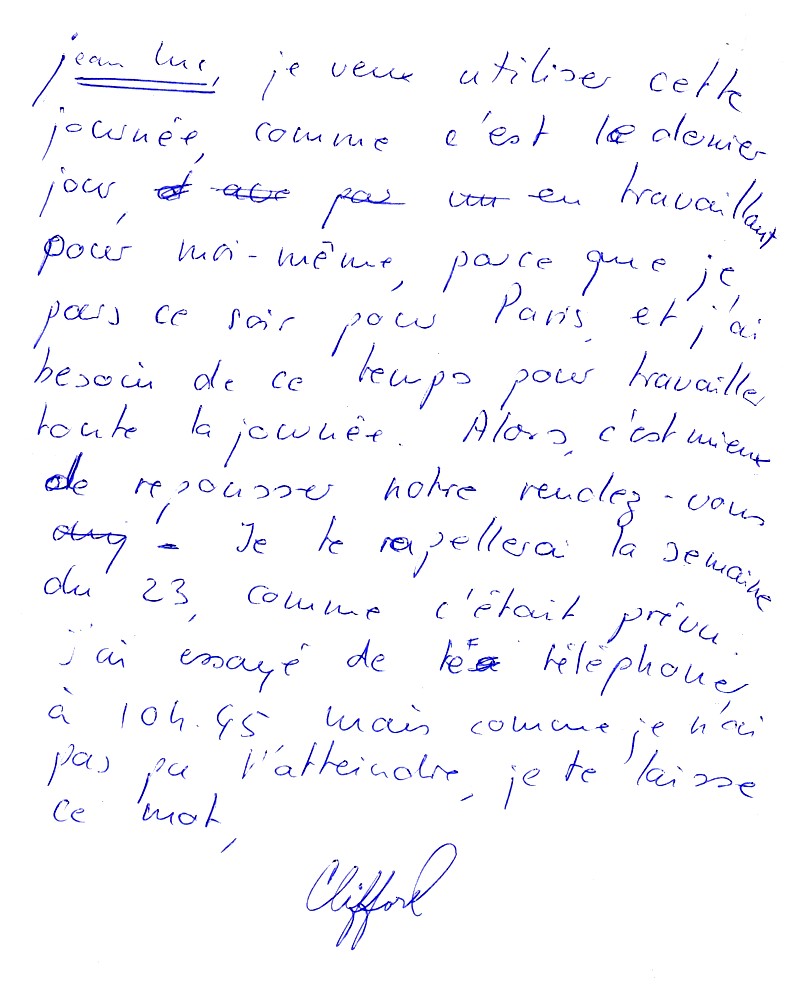 jean luc, je veux utiliser cette
journée, comme c'est le dernier
jour, en travaillant
pour moi-même, parce que je,
pars ce soir pour Paris, et j'ai
besoin de ce temps pour travailler
toute la journée. Alors, c'est mieux
de repousser notre rendez-vous
- Je te rapellerai la semaine
du 23, comme c'était prévu.
j'ai essayé de te téléphoner
à 10h.45 mais comme je n'ai
pas pu t'atteindre, je te laisse
ce mot,
Clifford